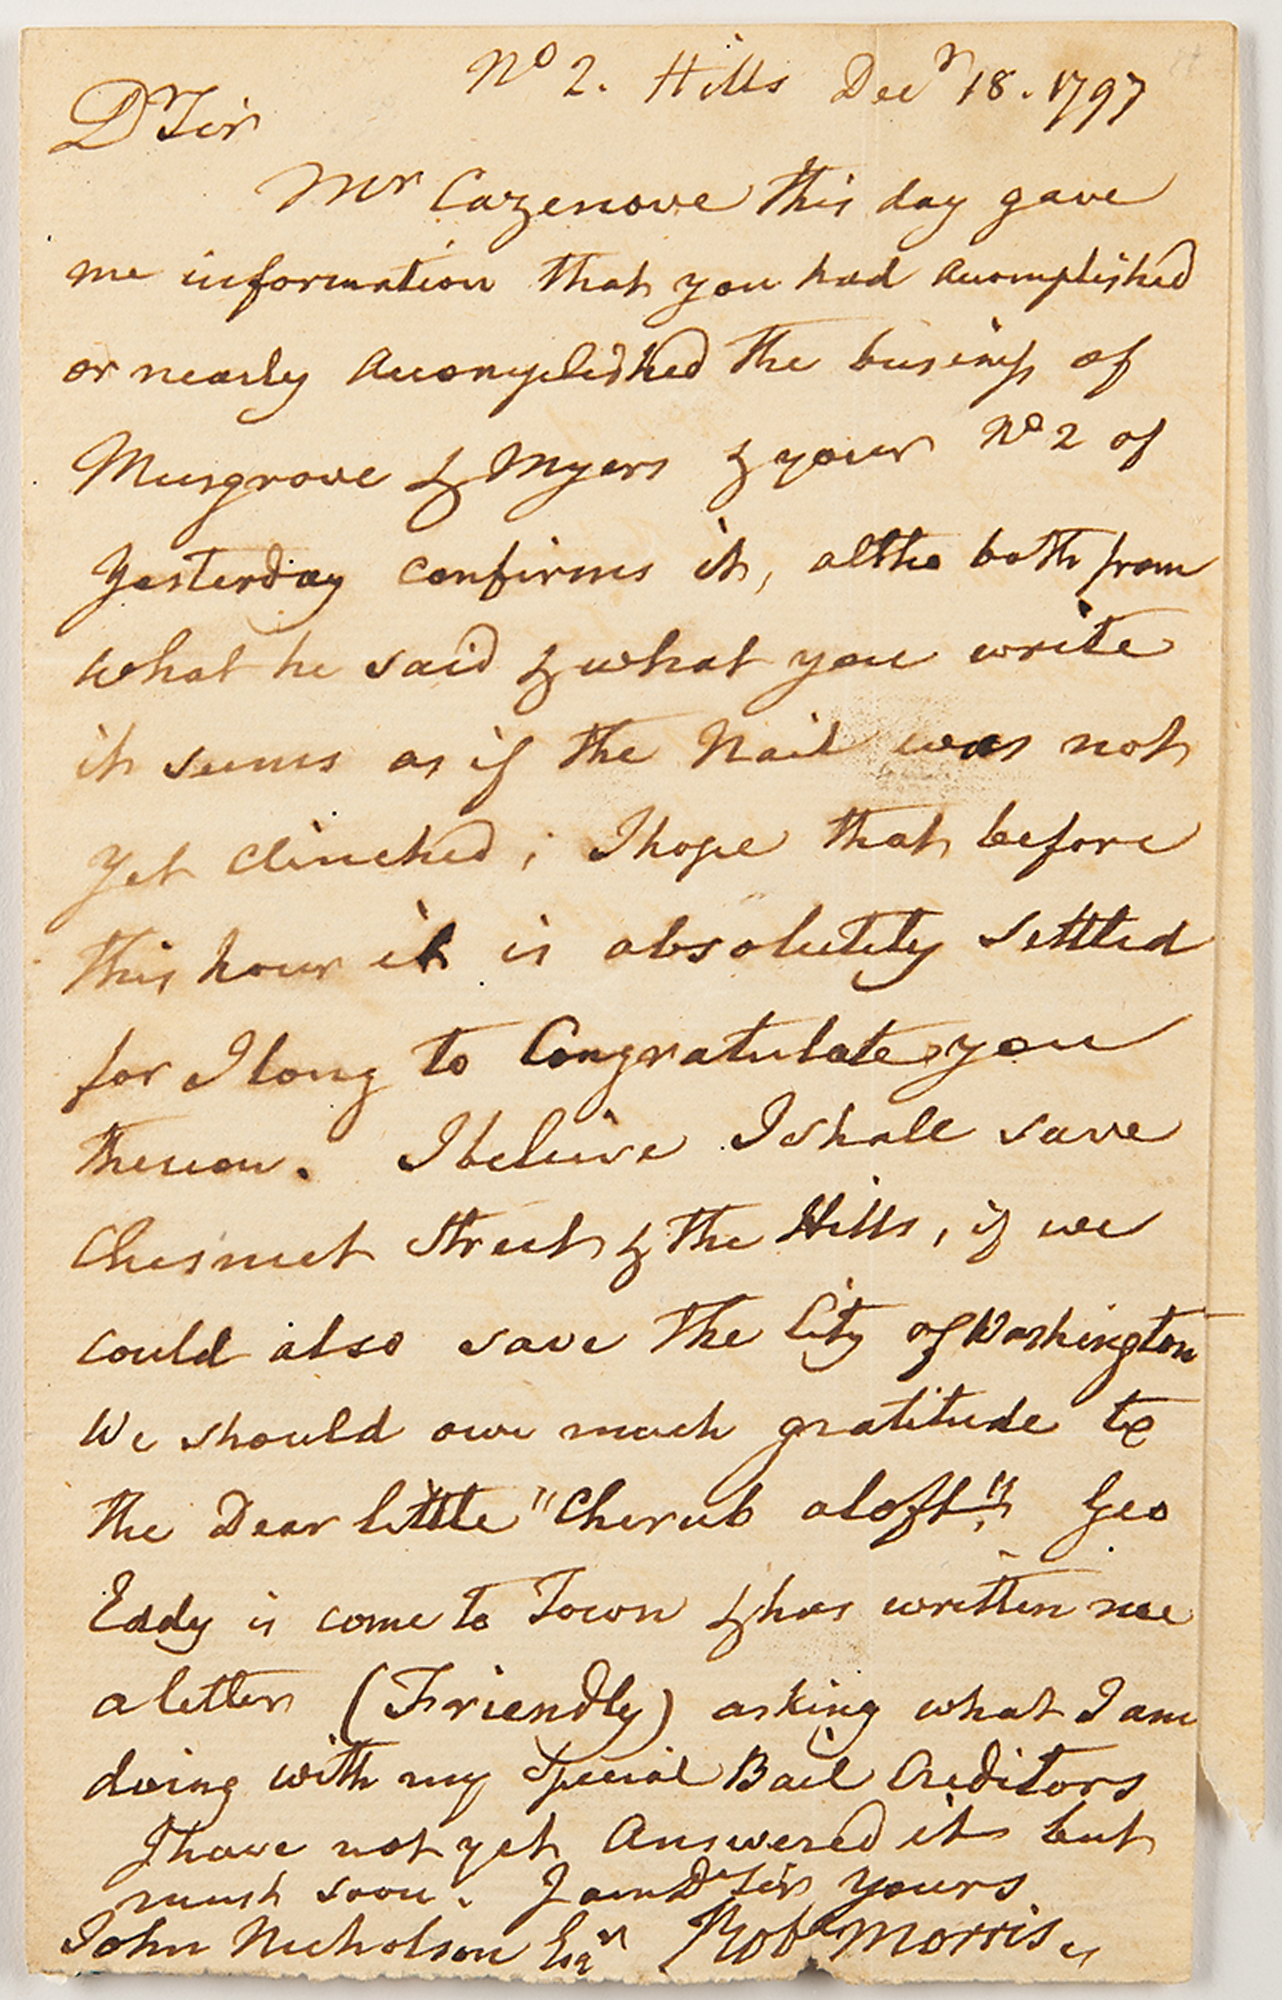 No 2. Hills Decr 18. 1797
Dr Sir
Mr Cazenove this day gave
me information that you had accomplished
or nearly accomplished the business of
Musgrove & Myers & your No 2 of
Yesterday confirms it, altho both from
what he said & what you write
it seems as if the Nail was not
yet clinched; I hope that before
this hour it is absolutely settled
for I long to Congratulate you
thereon. I believe I shall save
Chesnut Street & the Hills, if we
could also save the City of Washington
We should owe much gratitude to
the Dear little "Cherub aloft". Geo
Eddy is come to Town & has written me
a letter (Friendly) asking what I am
doing with my Special Bail Creditors
I have not yet Answered it but
must soon. I am Dr Sir Yours
John Nicholson Esqr Robt Morris